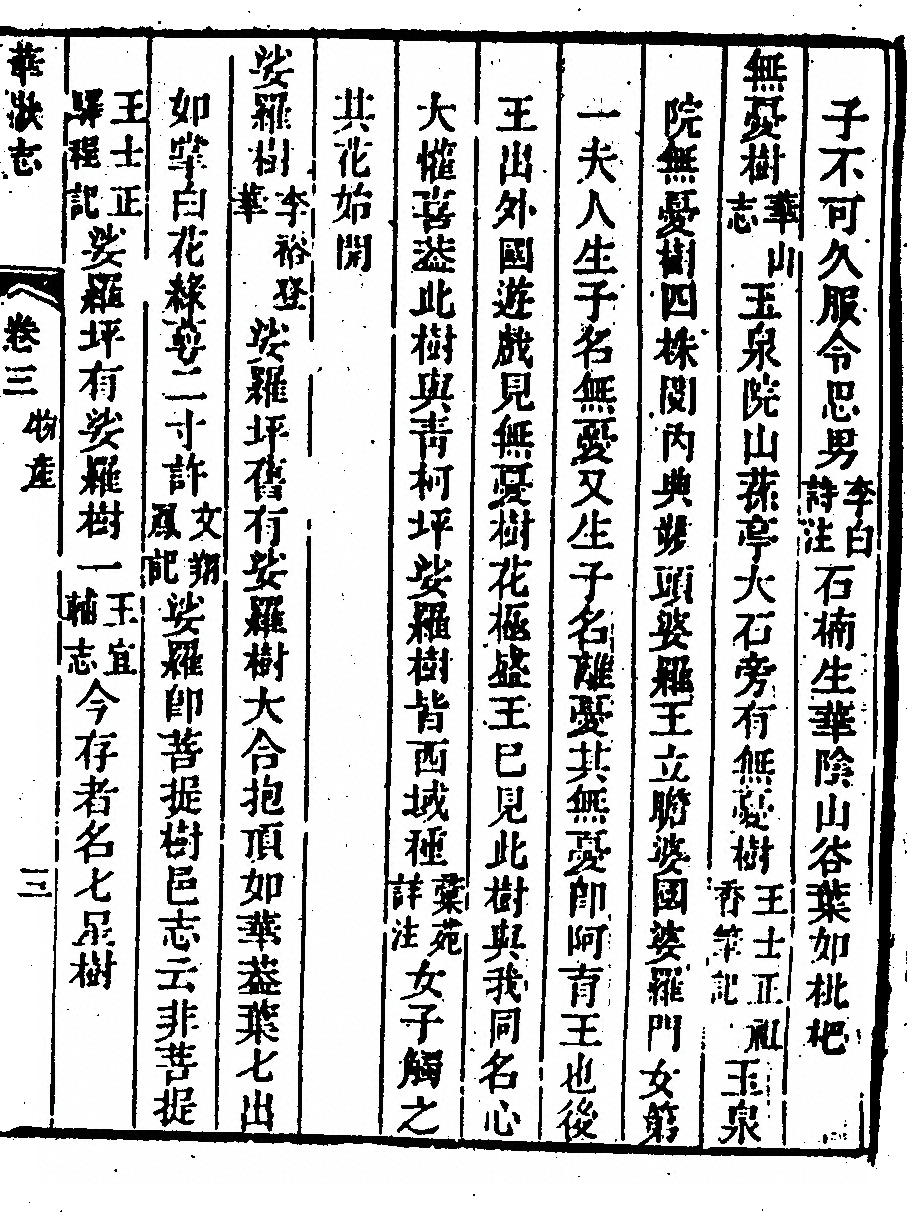 子不可久服令思男李白詩注石楠生華陰山谷葉如枇杷
無憂樹華山志玉泉院山蓀亭大石旁有無憂樹王士正香祖筆記玉泉
院無憂樹四株閱內典頭婆羅王立瞻婆國婆羅門女第
一夫人生子名無憂又生子名離憂其無憂即阿育王也後
王出外國遊戲見無憂樹花極盛王巳見此樹與我同名心
大懽喜葢此樹與靑柯坪娑羅樹皆西域種彙苑詳注女子觸之
其花始開
娑羅樹李裕登華娑羅坪舊有娑羅樹大合抱頂如華葢葉七出
如掌白花綠萼二寸許文翔鳳記娑羅即菩提樹邑志云非菩提
王士正驛程記娑羅坪有娑羅樹一王宜輔志今存者名七星樹
華嶽志 卷三 物產 三